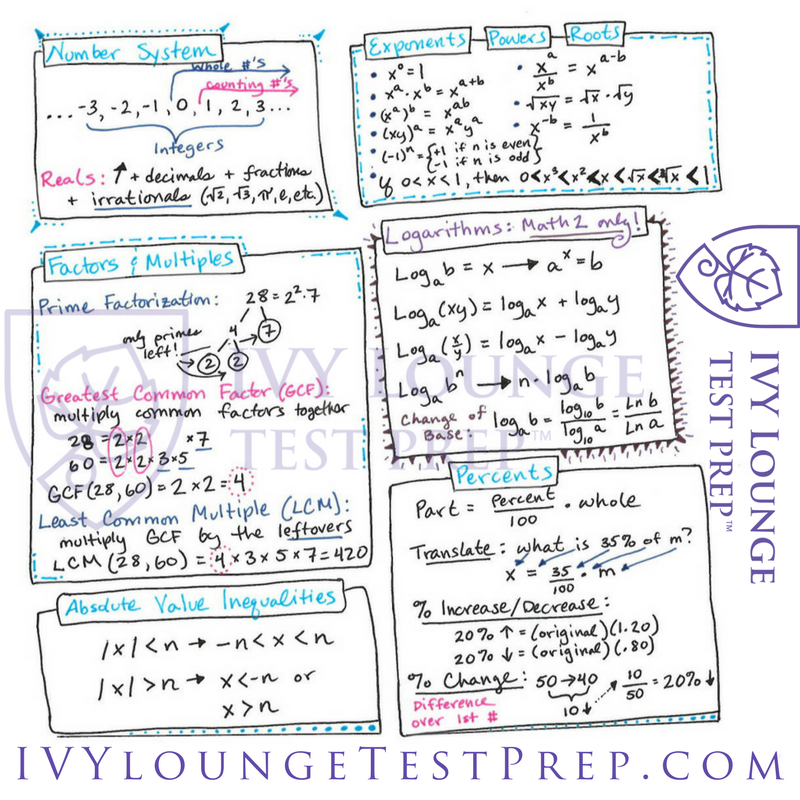 Number System
whole #'s
counting #'s
... -3, -2, -1, 0, 1, 2, 3...
Integers
Reals: ↑ + decimals + fractions
+ irrationals (√2, √3, π, e, etc.)
Exponents Powers Roots
• x⁰ = 1
• xᵃ · xᵇ = xᵃ⁺ᵇ
• (xᵃ)ᵇ = xᵃᵇ
• (xy)ᵃ = xᵃyᵃ
• xᵃ/xᵇ = xᵃ⁻ᵇ
• √xy = √x · √y
• x⁻ᵇ = 1/xᵇ
• (-1)ⁿ = {+1 if n is even
-1 if n is odd}
If 0<x<1, then 0<x³<x²<x<√x<∛x<1
Factors & Multiples
Prime Factorization: 28 = 2²·7
only primes left!
4 7
2 2
Greatest Common Factor (GCF):
multiply common factors together
28 = 2×2 ×7
60 = 2×2×3×5
GCF(28, 60) = 2 × 2 = 4
Least Common Multiple (LCM):
multiply GCF by the leftovers
LCM (28, 60) = 4 × 3 × 5 × 7 = 420
Logarithms: Math 2 only!
Logₐb = x → aˣ = b
Logₐ(xy) = logₐx + logₐy
Logₐ(x/y) = logₐx - logₐy
Logₐbⁿ → n·logₐb
Change of Base: logₐb = log₁₀b/log₁₀a = Ln b/Ln a
Absolute Value Inequalities
|x| < n → -n < x < n
|x| > n → x < -n or
x > n
Percents
Part = Percent/100 · whole
Translate: what is 35% of m?
x = 35/100 · m
% Increase/Decrease:
20% ↑ = (original)(1.20)
20% ↓ = (original)(.80)
% Change: 50 → 40 10/50 = 20% ↓
10↓
Difference
over 1st #
IVY LOUNGE
TEST PREP™
IVY LOUNGE
TEST PREP™
IVYLOUNGETESTPREP.COM